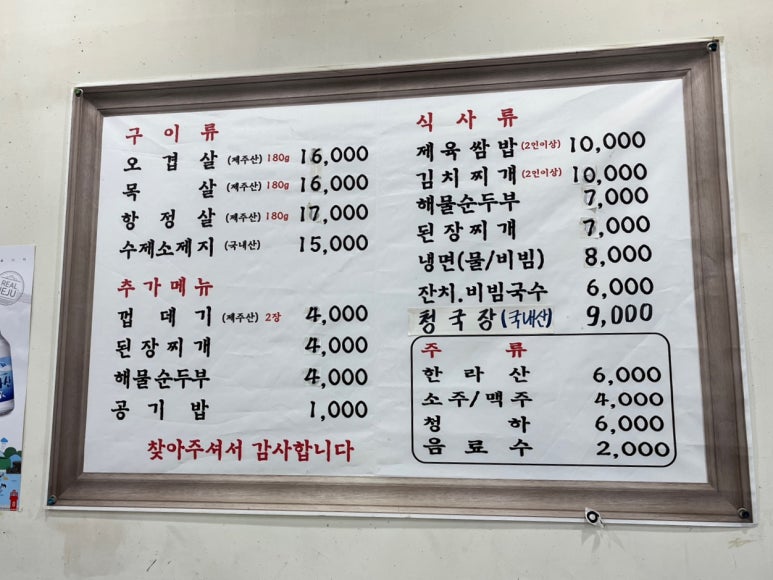 구이류
오겹살 (제주산) 180g 16,000
목살 (제주산) 180g 16,000
항정살 (제주산) 180g 17,000
수제소제지 (국내산) 15,000
추가메뉴
껍데기 (제주산) 2장 4,000
된장찌개 4,000
해물순두부 4,000
공기밥 1,000
찾아주셔서 감사합니다
식사류
제육쌈밥 (2인이상) 10,000
김치찌개 (2인이상) 10,000
해물순두부 7,000
된장찌개 7,000
냉면(물/비빔) 8,000
잔치.비빔국수 6,000
청국장 (국내산) 9,000
주류
한라산 6,000
소주/맥주 4,000
청하 6,000
음료수 2,000
REAL
JEJU